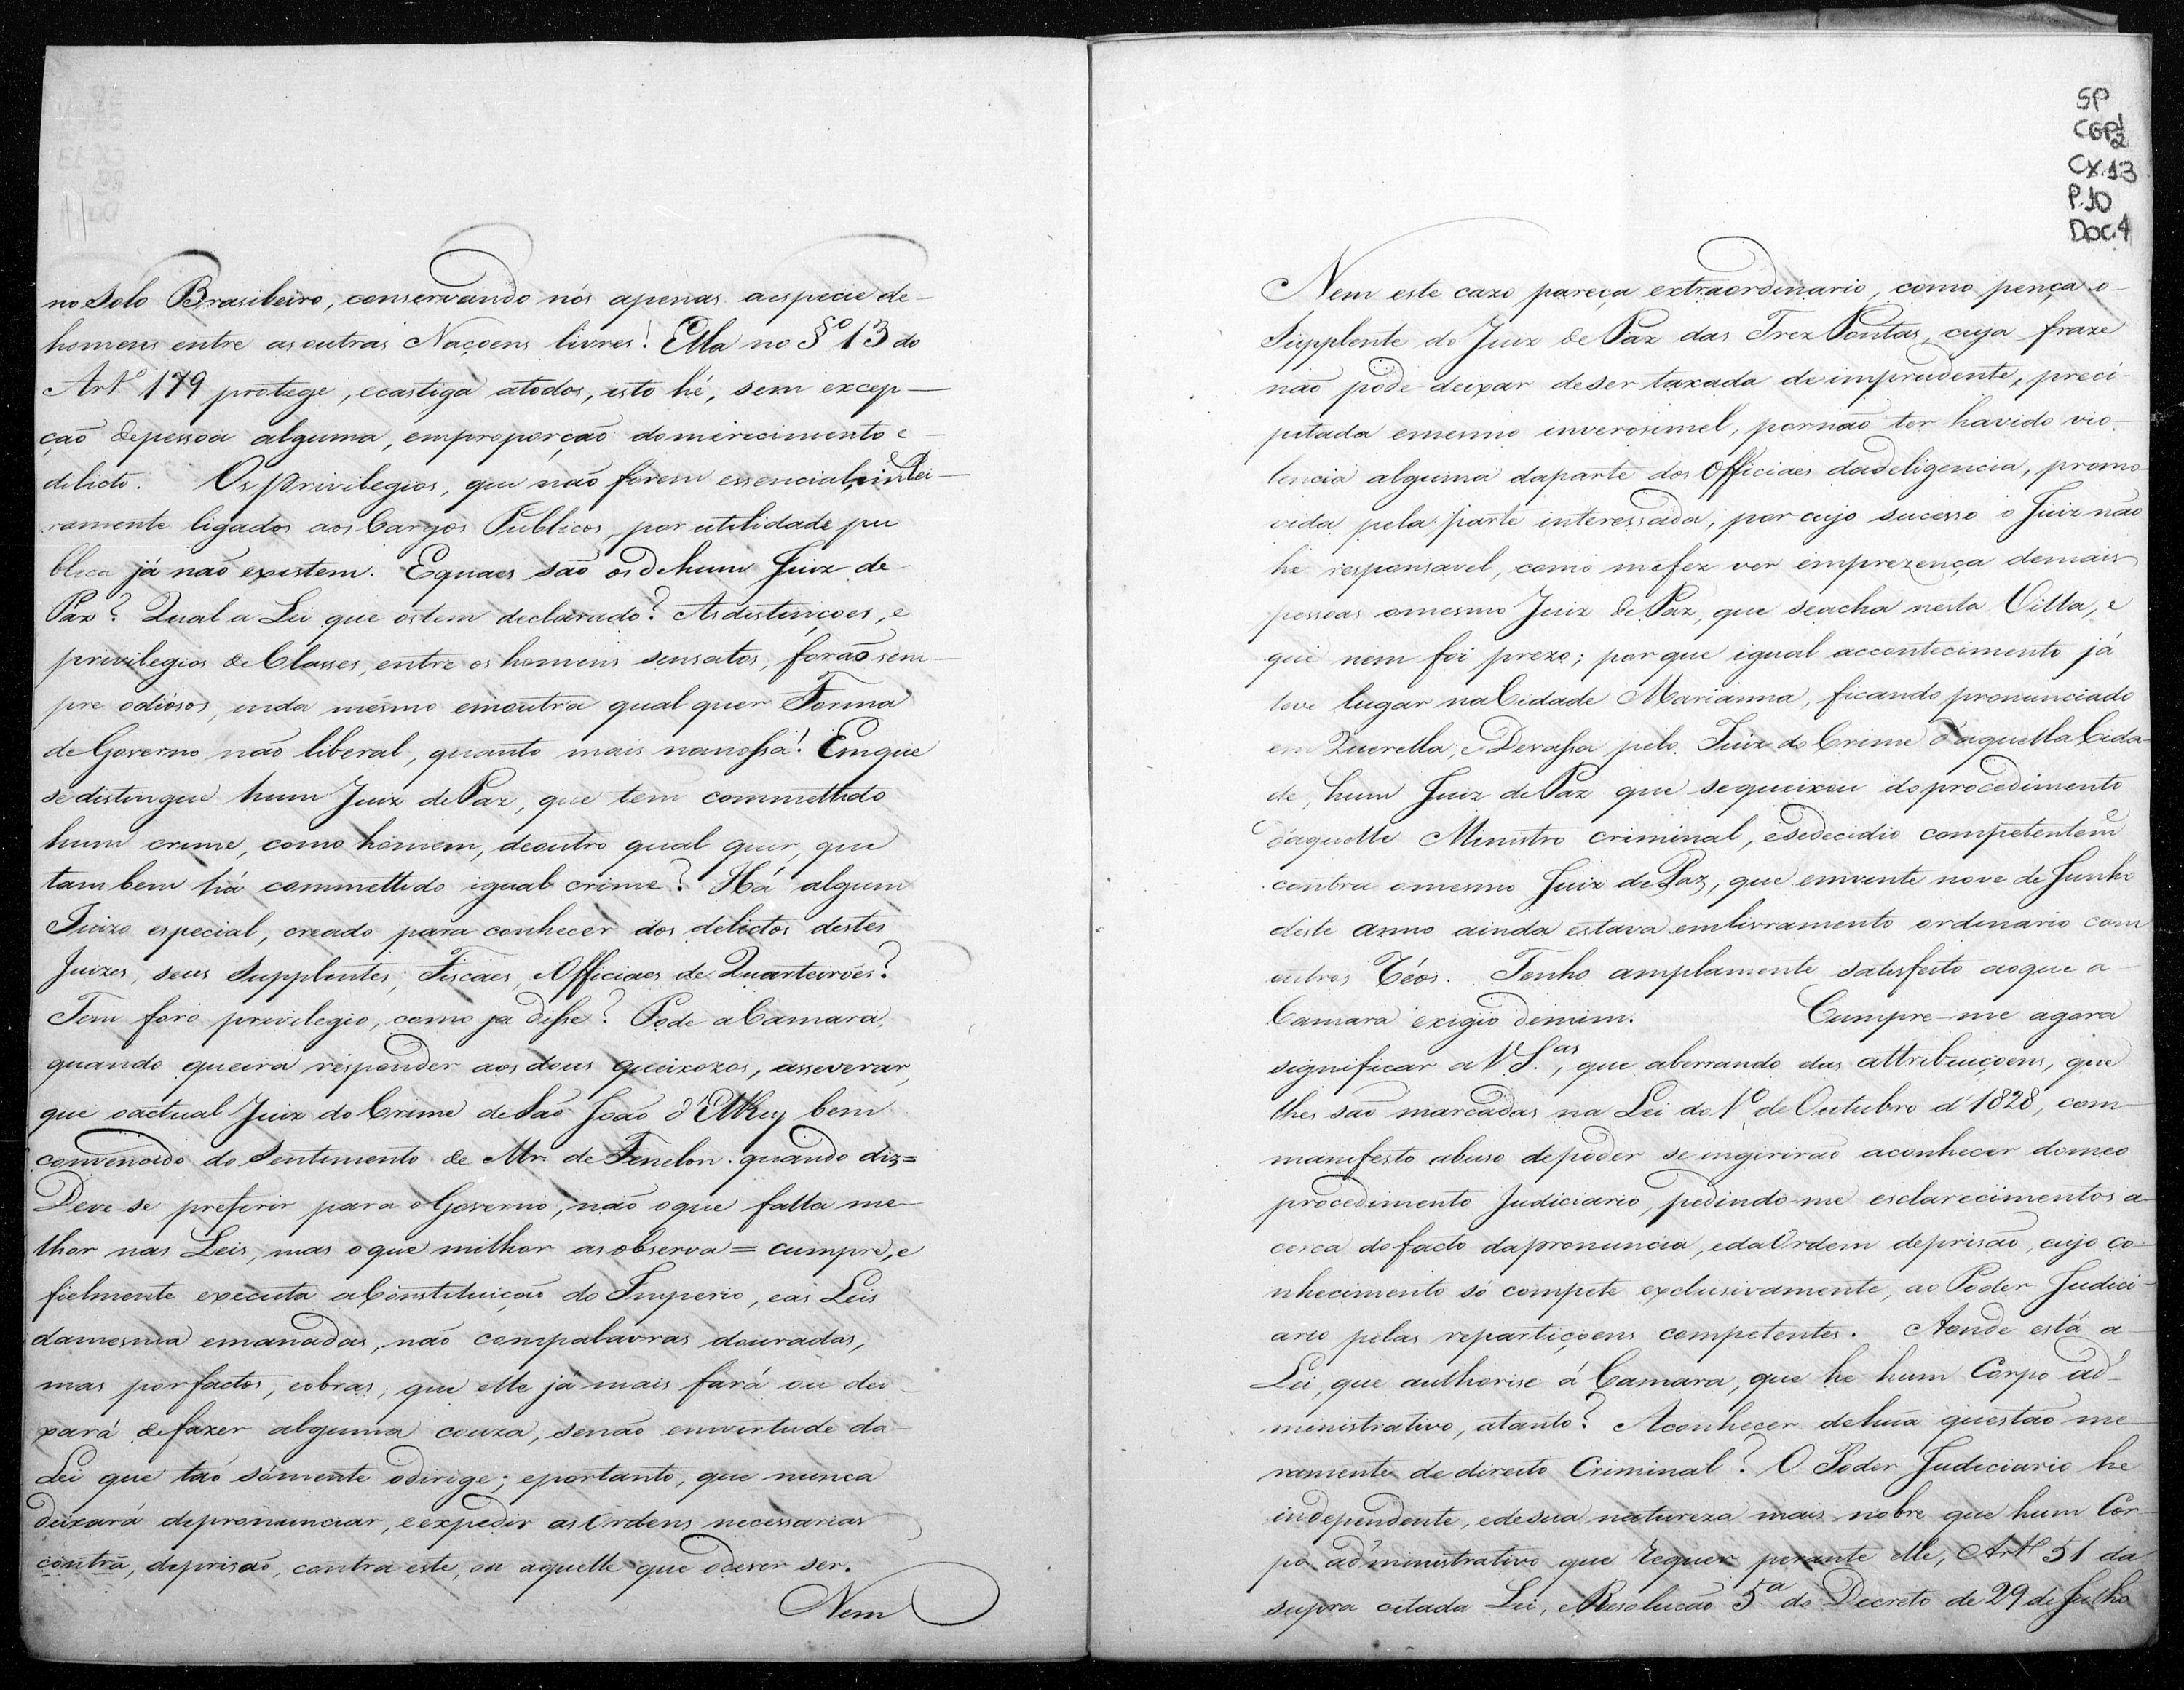 no solo Brasileiro, conservando nós apenas aespecie de-
homens entre as outras Naçoens livres! Ella no §º 13 do
Artº 179 protege, ecastiga atodos, isto hé, sem excep-
çaõ depessoa alguma, emproporçaõ domerecimento e-
delicto. Os Privilegios, que naõ forem essencial, einteI-
ramente ligados aos Cargos Publicos, por utilidade pu
blica já naõ existem. Equaes saõ os dehum Juiz de
Paz? Qual a Lei que ostem declarado? As distinçoes, e
privilegios de Classes, entre os homens sensatos, foraõ sem-
pre odiósos, inda mesmo emoutra qual quer Forma
de Governo naõ liberal, quanto mais nanossa! Emque
se distingue hum Juiz de Paz, que tem commettido
hum crime, como homem, deoutro qual quer, que
tam bem há commettido igual crime? Há algum
Juizo especial, creado para conhecer dos delictos destes
Juizes, seus Supplentes, Fiscaes, Officiaes de Quarteiroẽs?
Tem foro privilegio, como ja disse? Pode aCamara,
quando queira responder aos dous queixozos, asseverar,
que oactual Juiz do Crime de Saõ Joaõ d'ElRey bem
convencido do Sentimento de Mr. de Fenelon quando diz=
Deve se preferir para oGoverno, naõ oque falla me-
lhor nas Leis, mas oque milhor as observa= cumpre, e
fielmente executa aConstituiçaõ do Imperio, eas Leis
damesma emanadas, naõ compalavras douradas,
mas porfactos, eobras; que elle já mais fará ou dei
xará de fazer alguma couza, senaõ emvirtude da
Lei que taõ sómente odirige; eportanto, que nunca
deixará depronunciar, eexpedir as Ordens necessarias
contra, deprisaõ, contra este, ou aquelle que odever ser.
Nem
SP
CGP1/2
CX.13
P.10
Doc.4
Nem este cazo pareça extraordinario, como pença o
Supplente do Juiz de Paz das Trez Pontas, cuja fraze
naõ póde deixar deser taxada de imprudente, preci-
pitada emesmo inverosimel, pornaõ ter havido vio-
lencia alguma daparte dos Officiaes dadeligencia, promo-
vida pela parte interessada, por cujo sucesso o Juiz naõ
he responsavel, como mefez ver emprezença demais
pessoas omesmo Juiz de Paz, que seacha nesta Villa, e
que nem foi prezo; por que igual accontecimento já
teve lugar naCidade Marianna, ficando pronunciado
em Querella, e Devassa pelo Juiz do Crime d'aquella Cida-
de, hum Juiz de Paz que sequeixou doprocedimento
d'aquelle Ministro criminal, esedecidio competentemẽ
contra omesmo Juiz de Paz, que emvinte nove de Junho
deste anno ainda estava emlivramento ordinario com
outros Réos. Tenho amplamente satisfeito aoque a
Camara exigio demim. Cumpre-me agora
significar aV. S.as, que aberrando das attribuiçoens, que
lhes saõ marcadas na Lei do 1º de Outubro d'1828, com
manifesto abuso depoder se ingeriraõ aconhecer domeo
procedimento Judiciario, pedindo-me esclarecimentos a-
cerca dofacto dapronuncia, edaOrdem deprisaõ, cujo co-
nhecimento só compete exclusivamente, ao Poder Judici-
ario pelas repartiçoens competentes. Aonde está a
Lei, que authorise á Camara, que he hum Corpo ad-
ministrativo, atanto? Aconhecer dehuã questaõ me-
ramente de direito Criminal? O Poder Judiciario he
independente, edesua natureza mais nobre que hum Cor-
po administrativo que requer perante elle, Artº 51 da
supra citada Lei, eResoluçaõ 5ª do Decreto de 29 de Julho